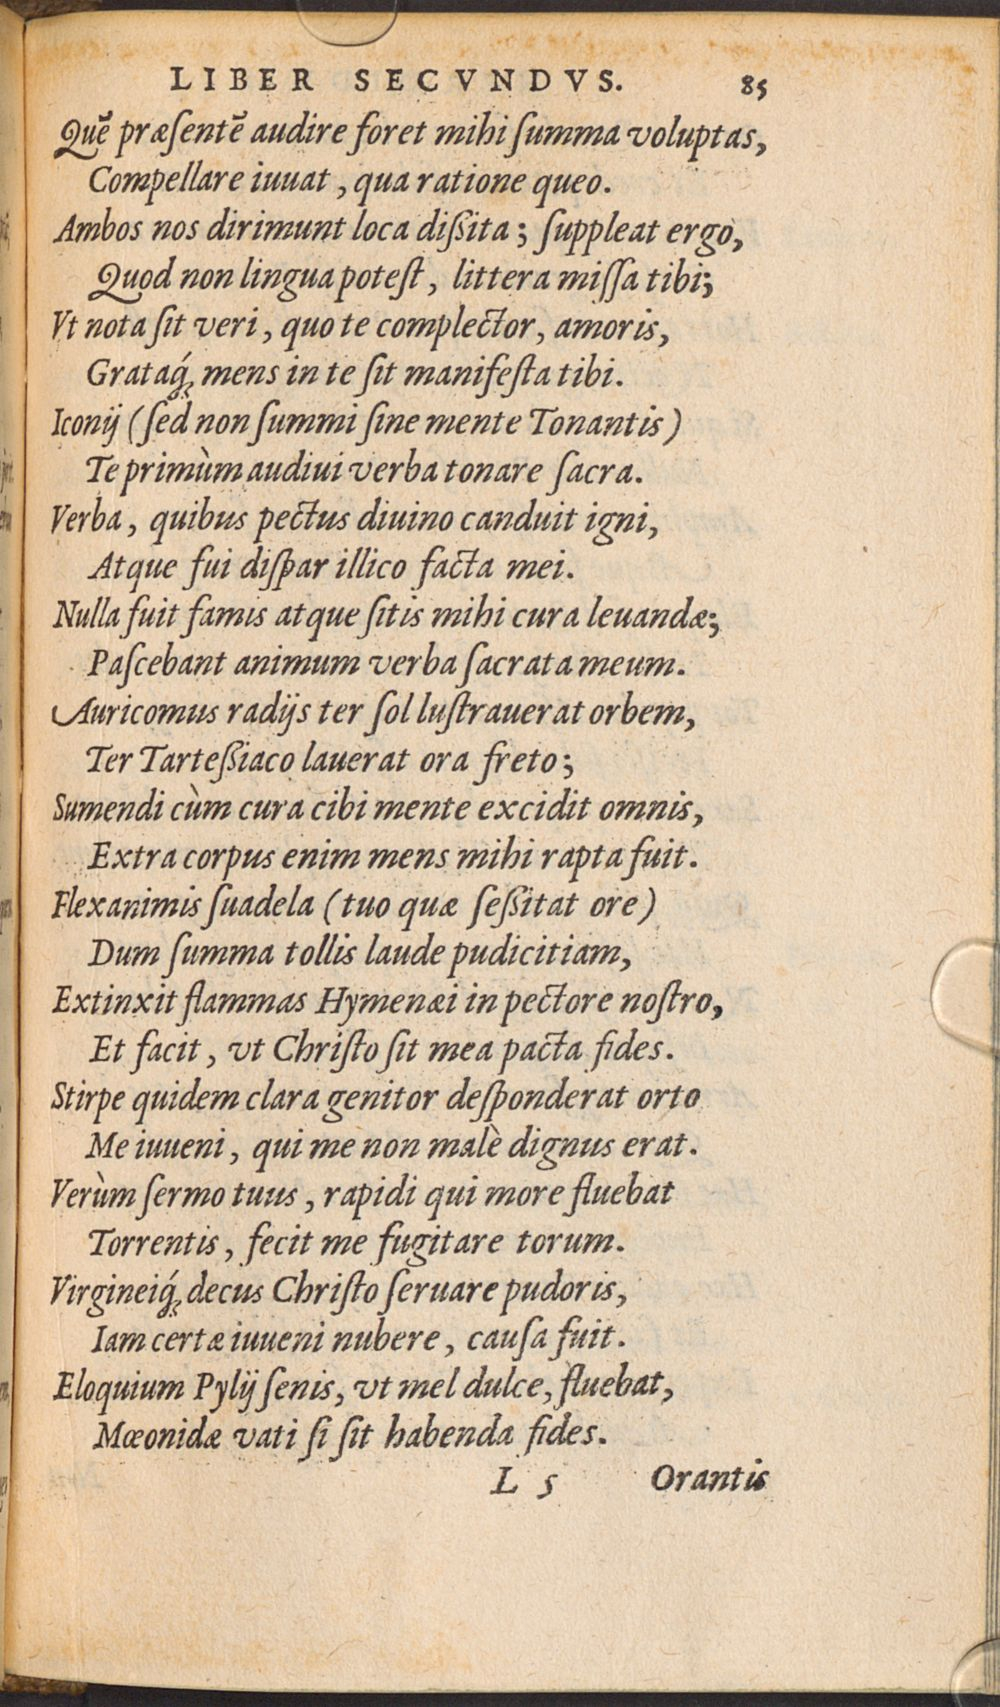 LIBER SECVNDVS. 85
Quē præſentē audire foret mihi ſumma voluptas,
Compellare iuuat, qua ratione queo.
Ambos nos dirimunt loca dißita; ſuppleat ergo,
Quod non lingua poteſt, littera miſſa tibi;
Vt nota ſit veri, quo te complector, amoris,
Grataq́; mens in te ſit manifeſta tibi.
Iconij (ſed non ſummi ſine mente Tonantis)
Te primùm audiui verba tonare ſacra.
Verba, quibus pectus diuino canduit igni,
Atque fui diſpar illico facta mei.
Nulla fuit famis atque ſitis mihi cura leuandæ;
Paſcebant animum verba ſacrata meum.
Auricomus radijs ter ſol luſtrauerat orbem,
Ter Tarteßiaco lauerat ora freto;
Sumendi cùm cura cibi mente excidit omnis,
Extra corpus enim mens mihi rapta fuit.
Flexanimis ſuadela (tuo quæ ſeßitat ore)
Dum ſumma tollis laude pudicitiam,
Extinxit flammas Hymenæi in pectore noſtro,
Et facit, vt Chriſto ſit mea pacta fides.
Stirpe quidem clara genitor deſponderat orto
Me iuueni, qui me non malè dignus erat.
Verùm ſermo tuus, rapidi qui more fluebat
Torrentis, fecit me fugitare torum.
Virgineiq́; decus Chriſto ſeruare pudoris,
Iam certæ iuueni nubere, cauſa fuit.
Eloquium Pylij ſenis, vt mel dulce, fluebat,
Mœonidæ vati ſi ſit habenda fides.
L 5 Orantis